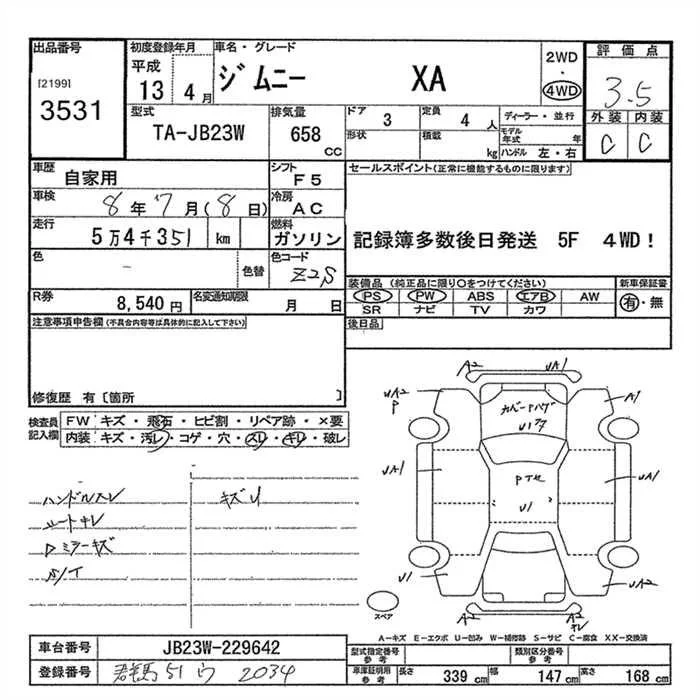 出品番号
[2199]
3531
初度登録年月
平成
13 4月
車名・グレード
ジムニー XA
2WD
・
4WD
評価点
3.5
外装 内装
C C
型式
TA-JB23W
排気量
658 cc
ドア 3
形状
定員 4 人
積載 kg
ディーラー・並行
モデル年式 年
ハンドル 左・右
車歴
自家用
シフト
F5
車検
8年7月(8日)
冷房
AC
走行
5万4千351 km
燃料
ガソリン
色
-
色替
色コード
Z2S
R券
8,540円
名変通知期限
月 日
セールスポイント(正常に機能するものに限ります)
記録簿多数後日発送 5F 4WD!
装備品(純正品に限り○をつけてください)
PS PW ABS エアB AW
SR ナビ TV カワ
新車保証書
有・無
後日品
注意事項申告欄(不具合内容等は具体的に記入して下さい)
修復歴 有〔箇所 〕
検査員
記入欄
FW キズ・飛石・ヒビ割・リペア跡・×要
内装 キズ・汚レ・コゲ・穴・スレ・キレ・破レ
ハンドルスレ
シートキレ
ミラーキズ
キズU
A2 UA1
UA2
P
A1
カバートハゲ
UA1
UA1
U1
U1
UA2
A2
A2
キレ
スペア
A-キズ E-エクボ U-凹み W-補修跡 S-サビ C-腐食 XX-交換済
車台番号
JB23W-229642
登録番号
群馬 51 ウ 2034
型式指定番号
参考
類別区分番号
参考
車庫証明用
参考
長さ 339 cm 幅 147 cm 高さ 168 cm